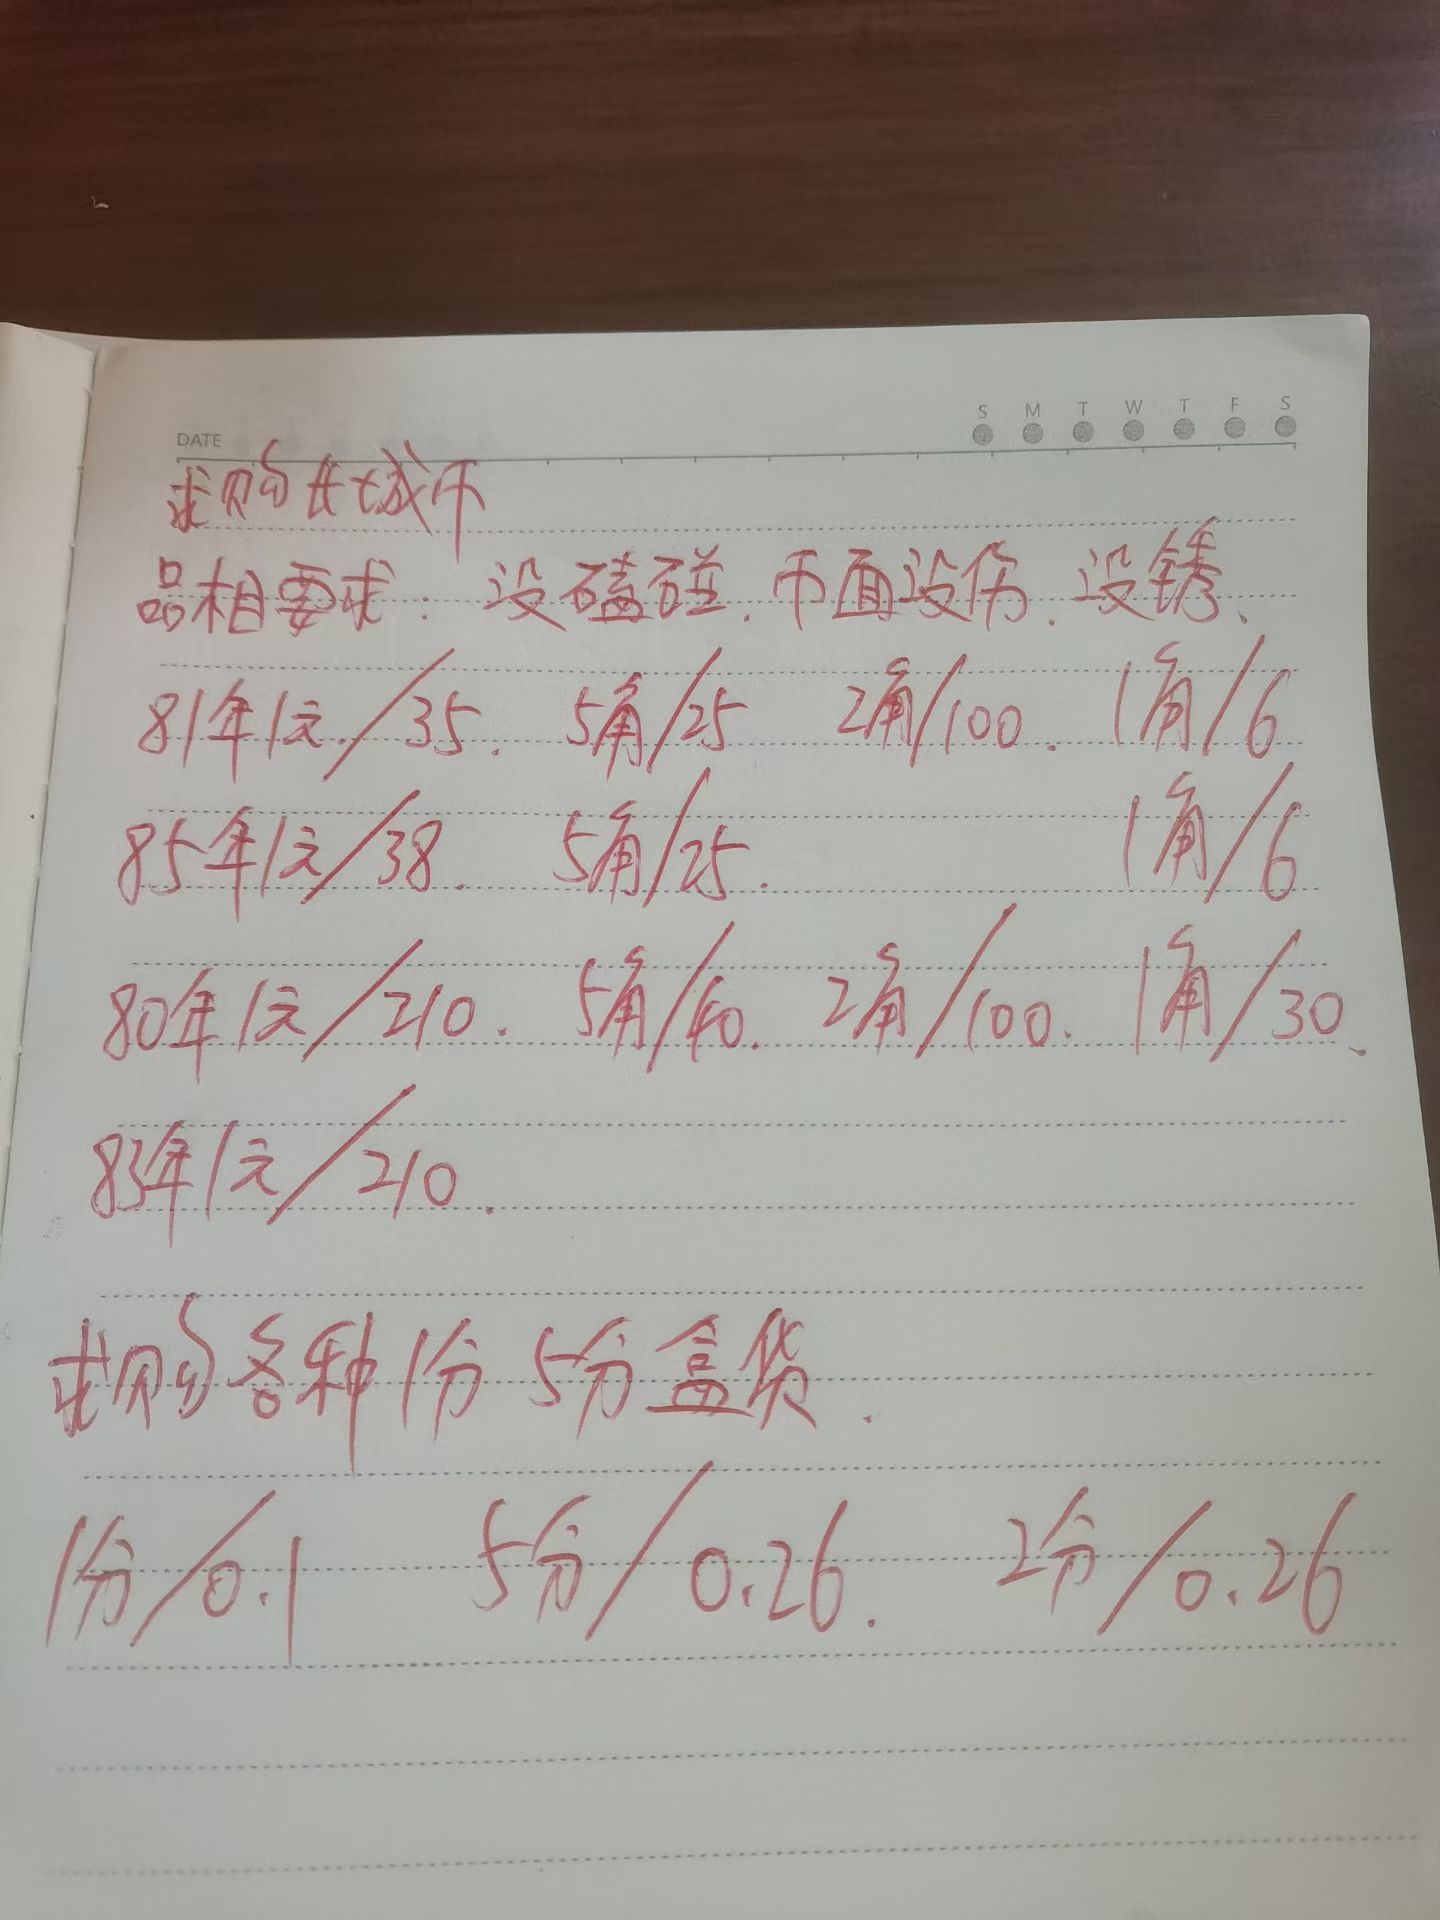 S M T W T F S
DATE
求购长城币
品相要求:没磕碰.币面没伤.没锈、
81年1元/35. 5角/25 2角/100. 1角/6
85年1元/38. 5角/25. 1角/6
80年1元/210. 5角/40. 2角/100. 1角/30、
83年1元/210.
求购各种1分 5分盒货.
1分/0.1 5分/0.26. 2分/0.26